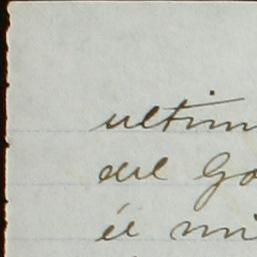 ultim
del Go
él mi